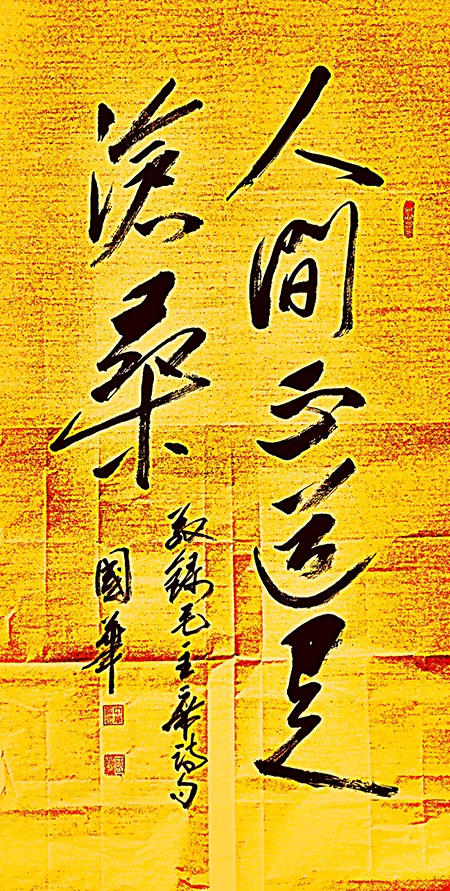 人間正道是
滄桑
敬錄毛主席詩句
國華